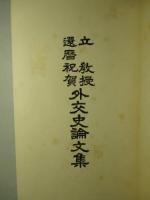 立教授
還暦祝賀
外交史論文集